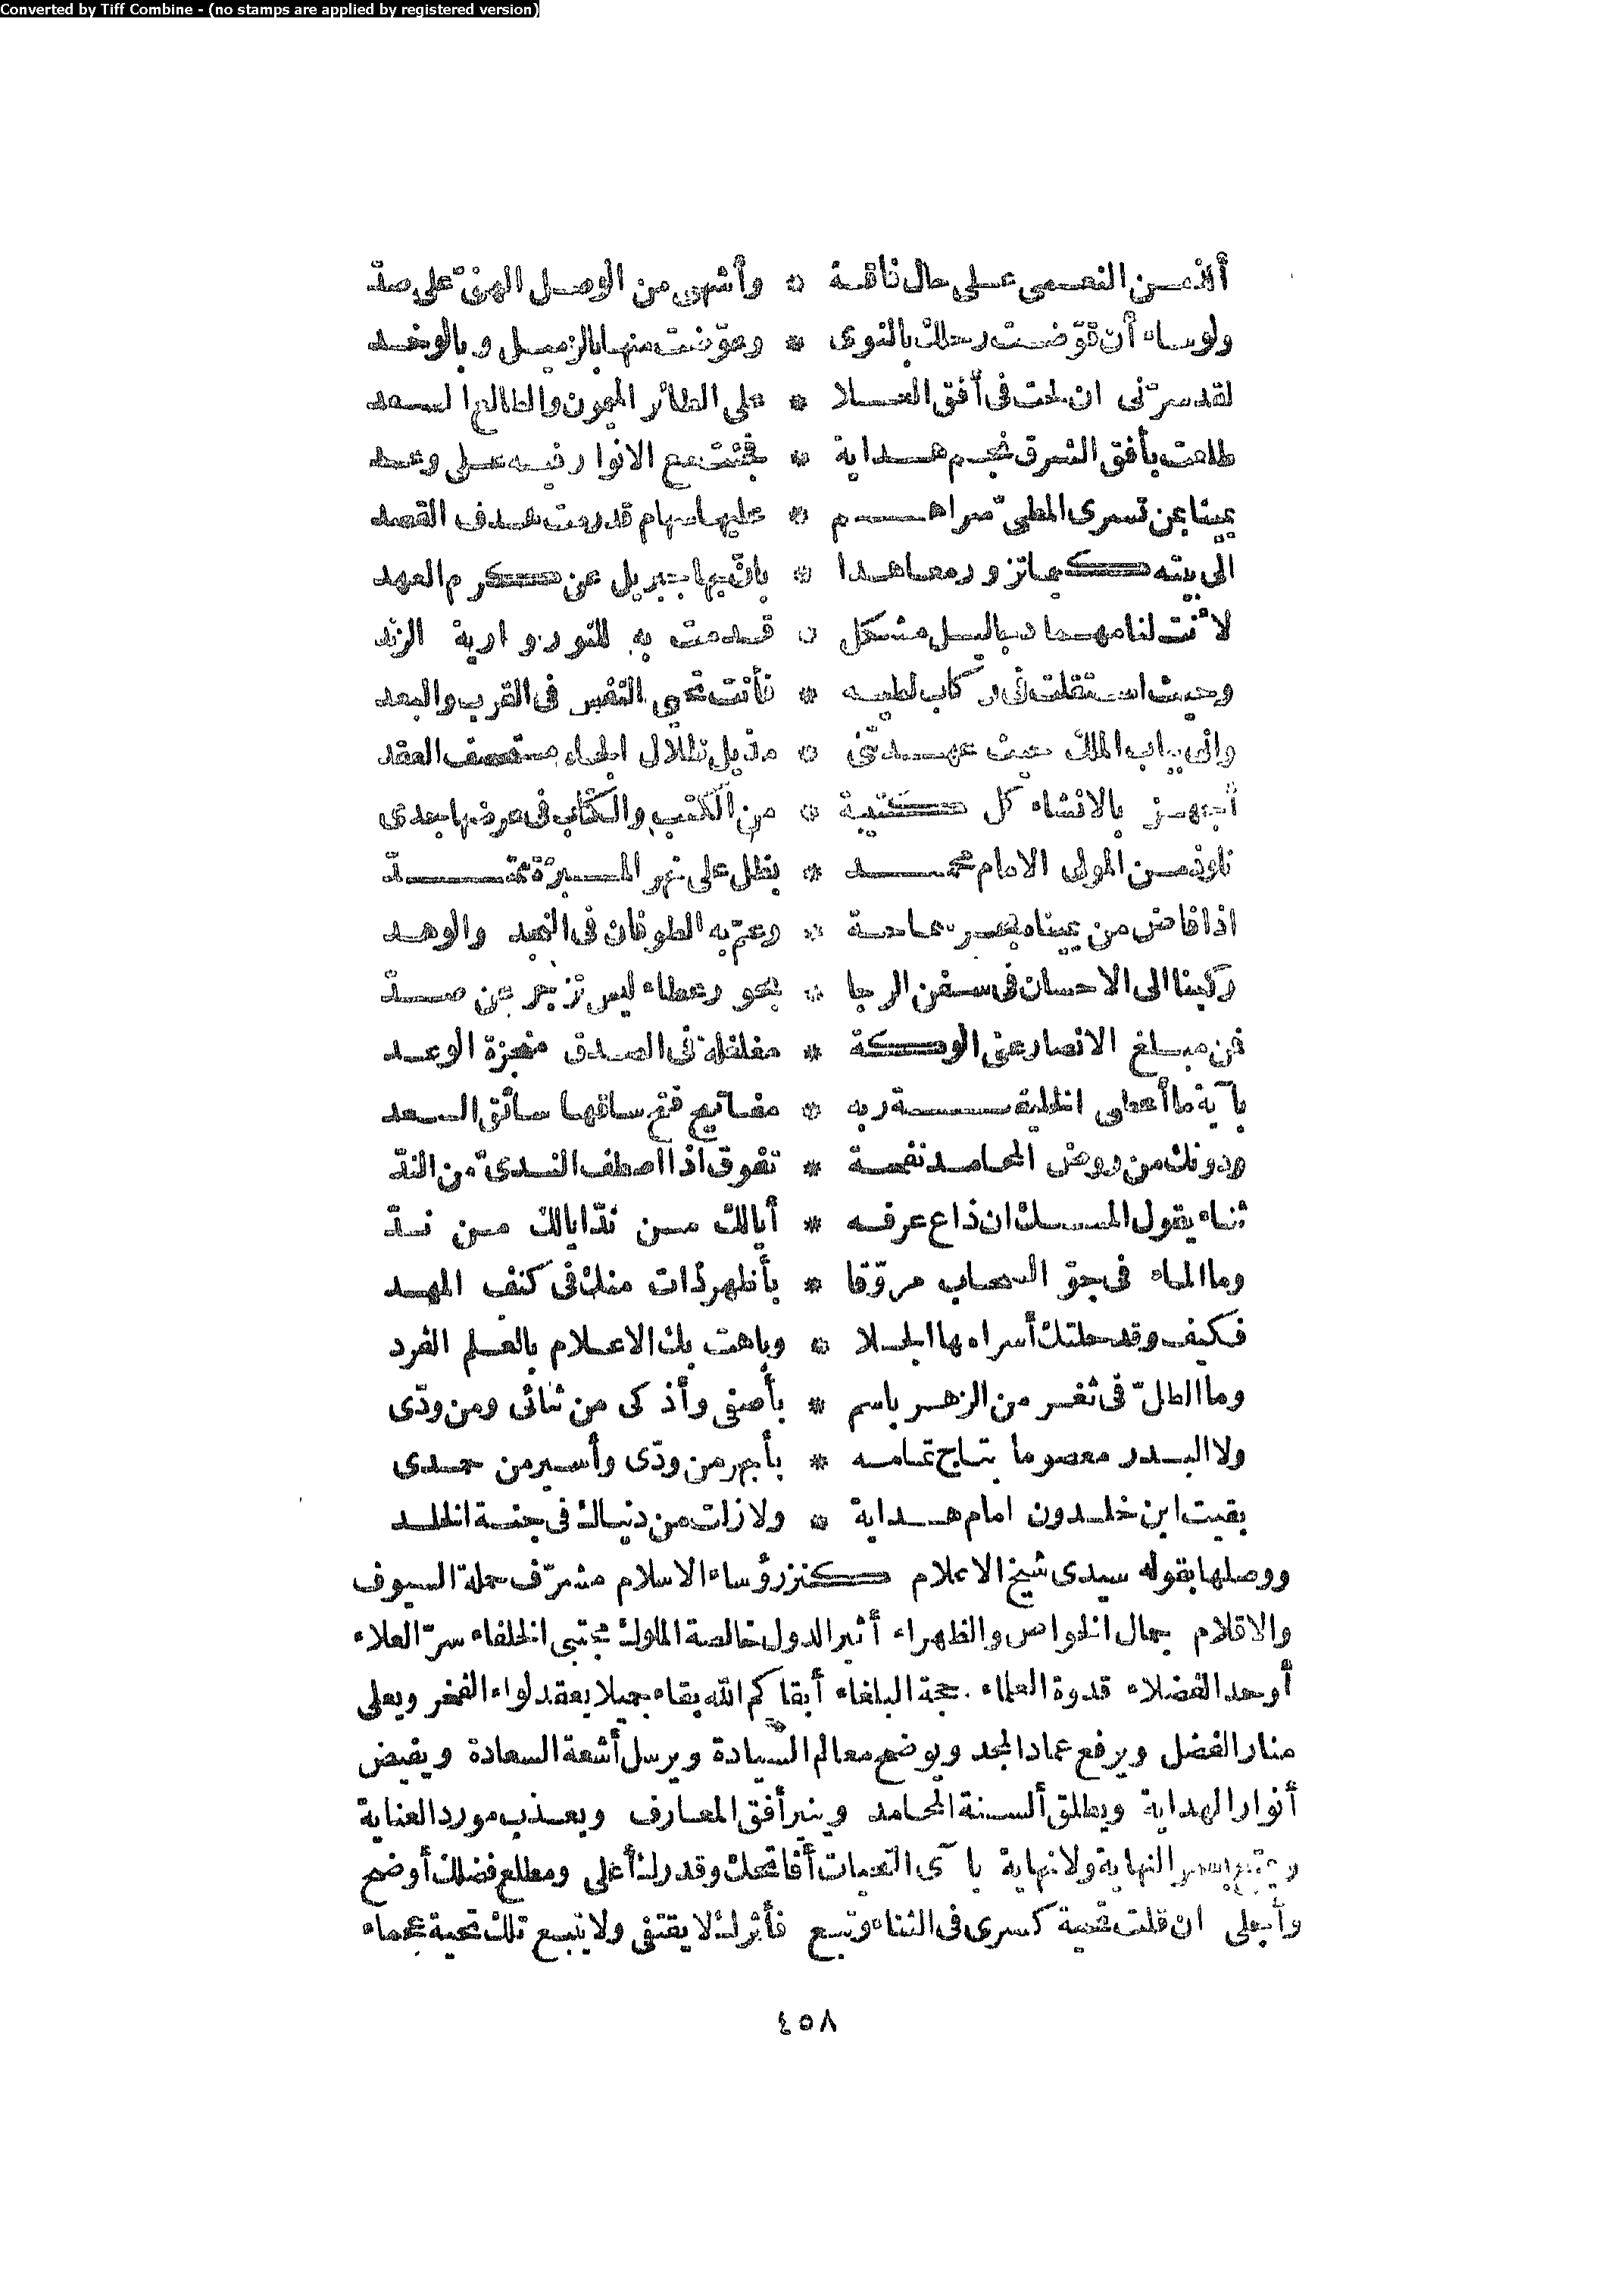 Converted by Tiff Combine - (no stamps are applied by registered version)
ألذ مــن النعــمى عــلى حال فاقــة * وأشهى من الوصــل الهنىّ على صدّ
ولو ساء أن قوّضــت رحلك بالنوى * وعوّضت منها بالزميــل وبالوخــد
لقد سرّنى ان لحت فى أفق العــلا * على الطائر الميمون والطالع السعد
طلعت بأفق الشرق نجــم هــداية * فجئت مع الانوار فيــه عــلى وعــد
يمينا بمن تسرى المطىّ سراهــم * عليها سهام قد رمت هدف القصد
الى بيته كــيما تزور معاهدا * أبان بها جبريل عن كــرم العهد
لأنت لنا مهــما دجا ليــل مشكل * قــدحت به للنور وارية الزند
وحيث استقلت فى ركاب لطيــه * فأنت نجى النفس فى القرب والبعد
وانى بباب الملك حيث عهــدتنى * مذيل ظلال الجاه مستحصف العقد
أجهــز بالانشاء كل كــتيبة * من الكتب والكتاب فى عرضها جندى
نلوذ مــن المولى الامام محمــد * بظل على نهر المــبرّة ممتــدّ
اذا فاض من يمناه بحر سماحــة * وعمّ به الطوفان فى النجد والوهــد
ركبنا الى الاحسان فى سفن الرجا * بحور عطاء ليس تزجر عن مــدّ
فمن مبــلغ الانصار عنى ألوكــة * مغلغلة فى الصدق منجزة الوعــد
بآية ما أعطى الخليفــة ربه * مفاتيح فتح ساقها سائق السعد
ودونك من روض المحامد نفحــة * تفوق اذا اصطف الندىّ من الندّ
ثناء يقول المســك ان ذاع عرفــه * أيالك مــن ندّ ايالك مــن نــدّ
وما الماء فى جوّ السحاب مروّقا * بأطهر ذات منك فى كنف المهــد
فكيف وقد حلتك أسرابها الحــلا * وباهت بك الاعــلام بالعــلم الفرد
وما الطلّ فى ثغــر من الزهــر باسم * بأصفى وأذكى من ثنائى ومن ودّى
ولا البــدر معصوما بتاج تمامــه * بأبهر من ودّى وأســير من حمــدى
بقيت ابن خلــدون امام هــداية * ولا زلت من دنياك فى جنــة الخلــد
ووصلها بقوله سيدى شيخ الاعلام كنز رؤساء الاسلام مشرّف حملة السيوف
والاقلام جمال الخواص والظهراء أثير الدول خالصة الملوك مجتبى الخلفاء سرّ العلاء
أوحد الفضلاء قدوة العلماء حجة البلغاء أبقاكم الله بقاء جميلا يعقد لواء الفخر ويعلى
منار الفضل ويرفع عماد المجد ويوضح معالم السيادة ويرسل أشعة السعادة ويفيض
أنوار الهداية ويطلق ألســنة المحامد وينير أفق المعارف ويعــذب مورد العناية
ويمتع بعمر النهاية ولا نهاية بآى التحيات أفاتحك وقدرك أعلى ومطلع فضلك أوضح
وأجلى ان قلت تحية كسرى فى الثناء وتبع فأثرك لا يقتفى ولا يتبع تلك تحية عجماء
٤٥٨